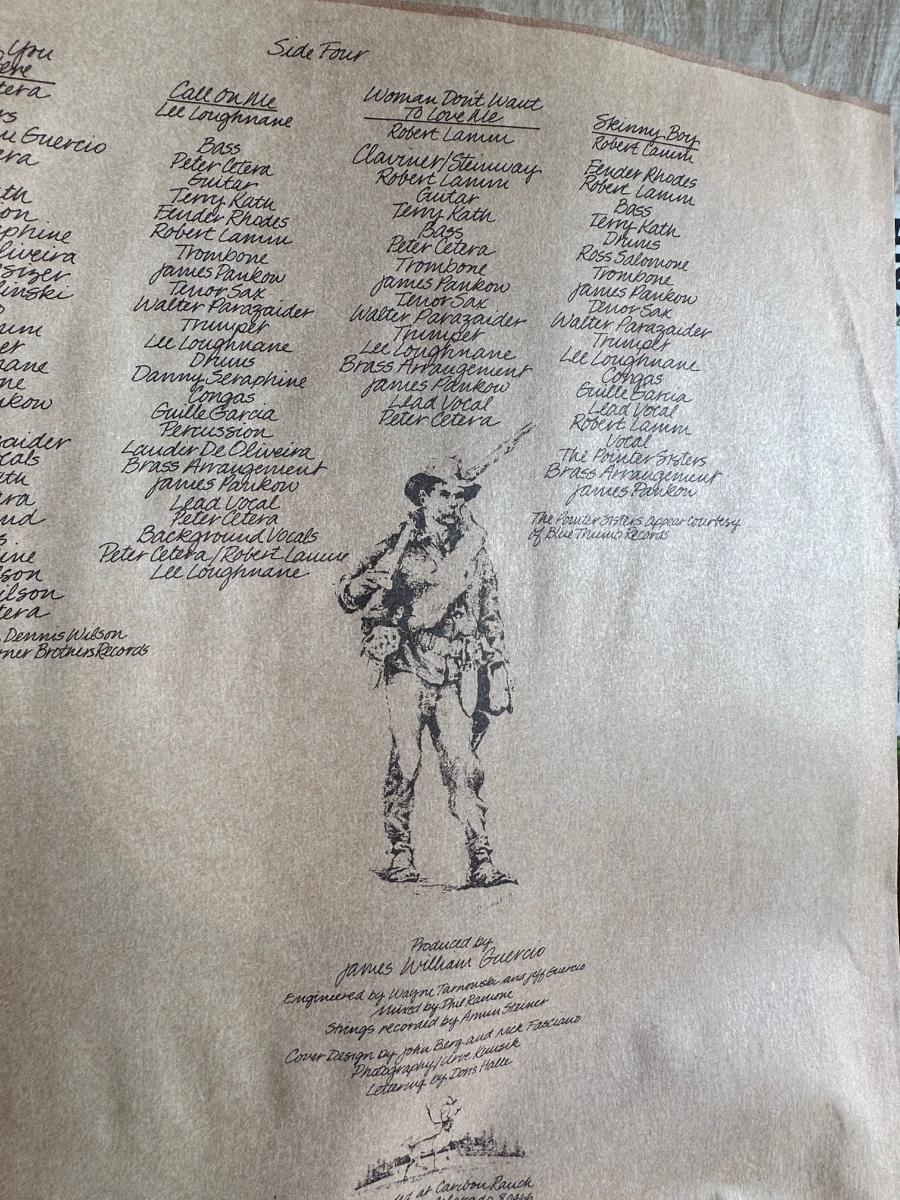 You
Side Four
Guercio
Dennis Wilson
Brothers Records
Call On Me
Lee Loughnane
Bass
Peter Cetera
Guitar
Terry Kath
Fender Rhodes
Robert Lamm
Trombone
James Pankow
Tenor Sax
Walter Parazaider
Trumpet
Lee Loughnane
Drums
Danny Seraphine
Congas
Guille Garcia
Percussion
Laudir De Oliveira
Brass Arrangement
James Pankow
Lead Vocal
Peter Cetera
Background Vocals
Peter Cetera / Robert Lamm
Lee Loughnane
Woman Don't Want
To Love Me
Robert Lamm
Clavinet/Steinway
Robert Lamm
Guitar
Terry Kath
Bass
Peter Cetera
Trombone
James Pankow
Tenor Sax
Walter Parazaider
Trumpet
Lee Loughnane
Brass Arrangement
James Pankow
Lead Vocal
Peter Cetera
Skinny Boy
Robert Lamm
Fender Rhodes
Robert Lamm
Bass
Terry Kath
Drums
Ross Salomone
Trombone
James Pankow
Tenor Sax
Walter Parazaider
Trumpet
Lee Loughnane
Congas
Guille Garcia
Lead Vocal
Robert Lamm
Vocal
The Pointer Sisters
Brass Arrangement
James Pankow
The Pointer Sisters appear courtesy
of Blue Thumb Records
Produced by
James William Guercio
Engineered by Wayne Tarnowski and Jeff Guercio
Mixed by Phil Ramone
Strings recorded by Armin Steiner
Cover Design by John Berg and Nick Fasciano
Photography/
Lettering by Doris Halle
at Caribou Ranch
80466